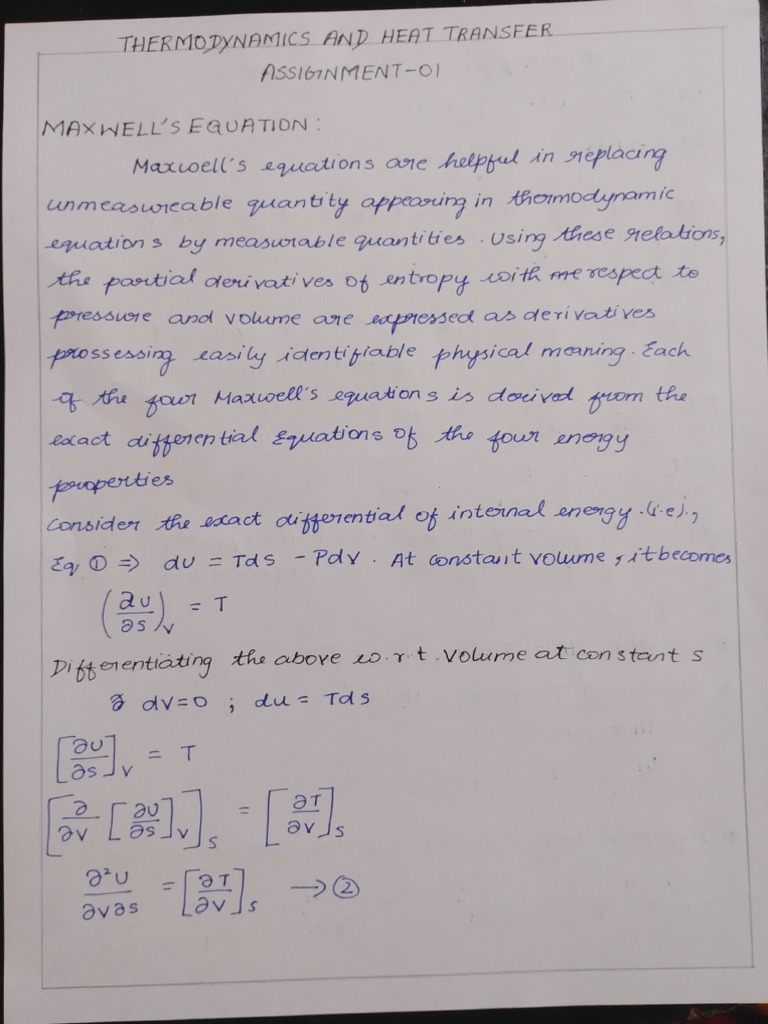 THERMODYNAMICS AND HEAT TRANSFER
ASSIGNMENT-01
MAXWELL'S EQUATION:
Maxwell's equations are helpful in replacing
unmeasureable quantity appearing in thermodynamic
equations by measurable quantities. Using these relations,
the partial derivatives of entropy with respect to
pressure and volume are expressed as derivatives
prossessing easily identifiable physical meaning. Each
of the four Maxwell's equations is derived from the
exact differential Equations of the four energy
properties
Consider the exact differential of internal energy. (i.e).,
Eq ① ⇒ du = Tds - Pdv. At constant volume, it becomes
(∂u/∂s)_v = T
Differentiating the above w.r.t. volume at constant s
dv=0 ; du = Tds
[∂u/∂s]_v = T
[∂/∂v [∂u/∂s]_v]_s = [∂T/∂v]_s
∂²u/∂v∂s = [∂T/∂v]_s → ②